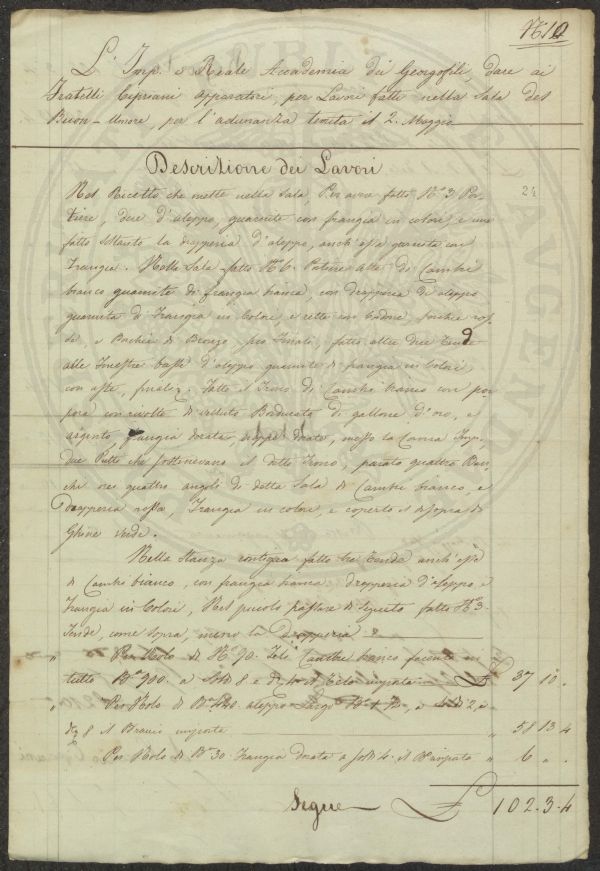 N.° 10
L'Imp. e Reale Accademia dei Georgofili, dare ai
Fratelli Cipriani apparatori, per Lavori fatti nella Sala del
Buon-Umore, per l'adunanza tenuta il 2. Maggio
Descrizione dei Lavori
24
Nel Ricetto che mette nella Sala, Per aver fatto N.° 3 Por-
tiere, due d'aleppo, guarnite con frangia in colori e una
fatto soltanto la drapperia d'aleppo, anch'essa guarnita con
Frangia. Nella Sala fatto N.° 6. Portiere alte di Cambrì
bianco guarnite di frangia bianca, con drapperia di aleppo
guarnita di Frangia in Colori, e rette con bodone, ros-
se, e di Bronzo, fatto altre due Tende
alle Finestre basse d'aleppo guarnite di frangia in Colori
con aste, finali. Fatto il Trono di Cambrì bianco con por-
pora con rivolte di velluto Borducato di gallone d'oro, e
argento, frangia dorata, dorato, messo la Corona Imp.
due Putti che sostenevano il detto Trono, parato quattro Ban-
chi nei quattro angoli di detta Sala di Cambrì bianco, e
Drapperia rossa, Frangia in colori, e coperto il disopra di
verde.
Nella Stanza contigua fatto tre Tende anch'esse
di Cambrì bianco, con frangia bianca drapperia d'Aleppo e
Frangia in Colori, Nel piccolo passare di seguito fatto N.° 3.
Tende, come sopra, meno la Drapperia
" Per Nolo di N.° 90. Teli Cambrì bianco facenti in
tutto B.a 900. a Soldi 8 e d. 4 il Telo importano £ 37 10 .
" Per Nolo di B.a aleppo Largo a Soldi 2. e
8 il Braccio importa " 58 13 4
Per Nolo di B.a 30 Frangia dorata a soldi 4. il B. importa " 6 " .
Segue £ 102.3.4